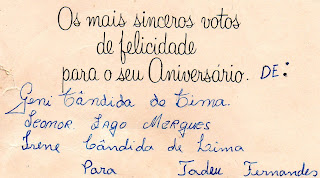 Os mais sinceros votos
de felicidade
para o seu Aniversário. DE:
Geni Cândida de Lima.
Leonor Lago Merques
Irene Cândida de Lima
Para Tadeu Fernandes